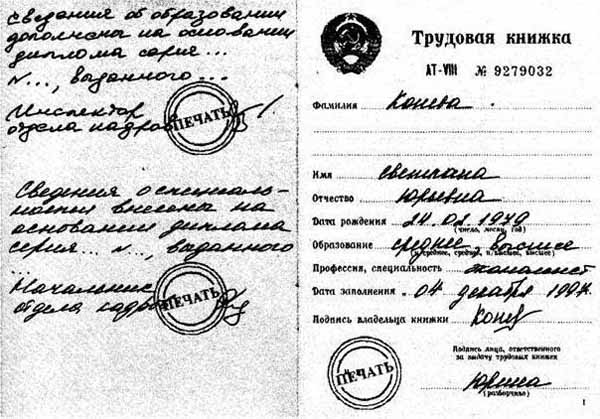 Сведения об образовании
дополнены на основании
диплома серия ...
N ..., выданного ...
Инспектор
отдела кадров
ПЕЧАТЬ
Сведения о специаль-
ности внесены на
основании диплома
серия ... N ..., выданного
...
Начальник
отдела кадров
ПЕЧАТЬ
Трудовая книжка
АТ-VIII № 9279032
Фамилия Конева
Имя Светлана
Отчество Юрьевна
Дата рождения 24.02.1979
(число, месяц, год)
Образование среднее, высшее
(н/среднее, среднее, н/высшее, высшее)
Профессия, специальность экономист
Дата заполнения 04 декабря 1997г.
Подпись владельца книжки Конев
Подпись лица, ответственного
за выдачу трудовых книжек
ПЕЧАТЬ
Юрина
(разборчиво)
1